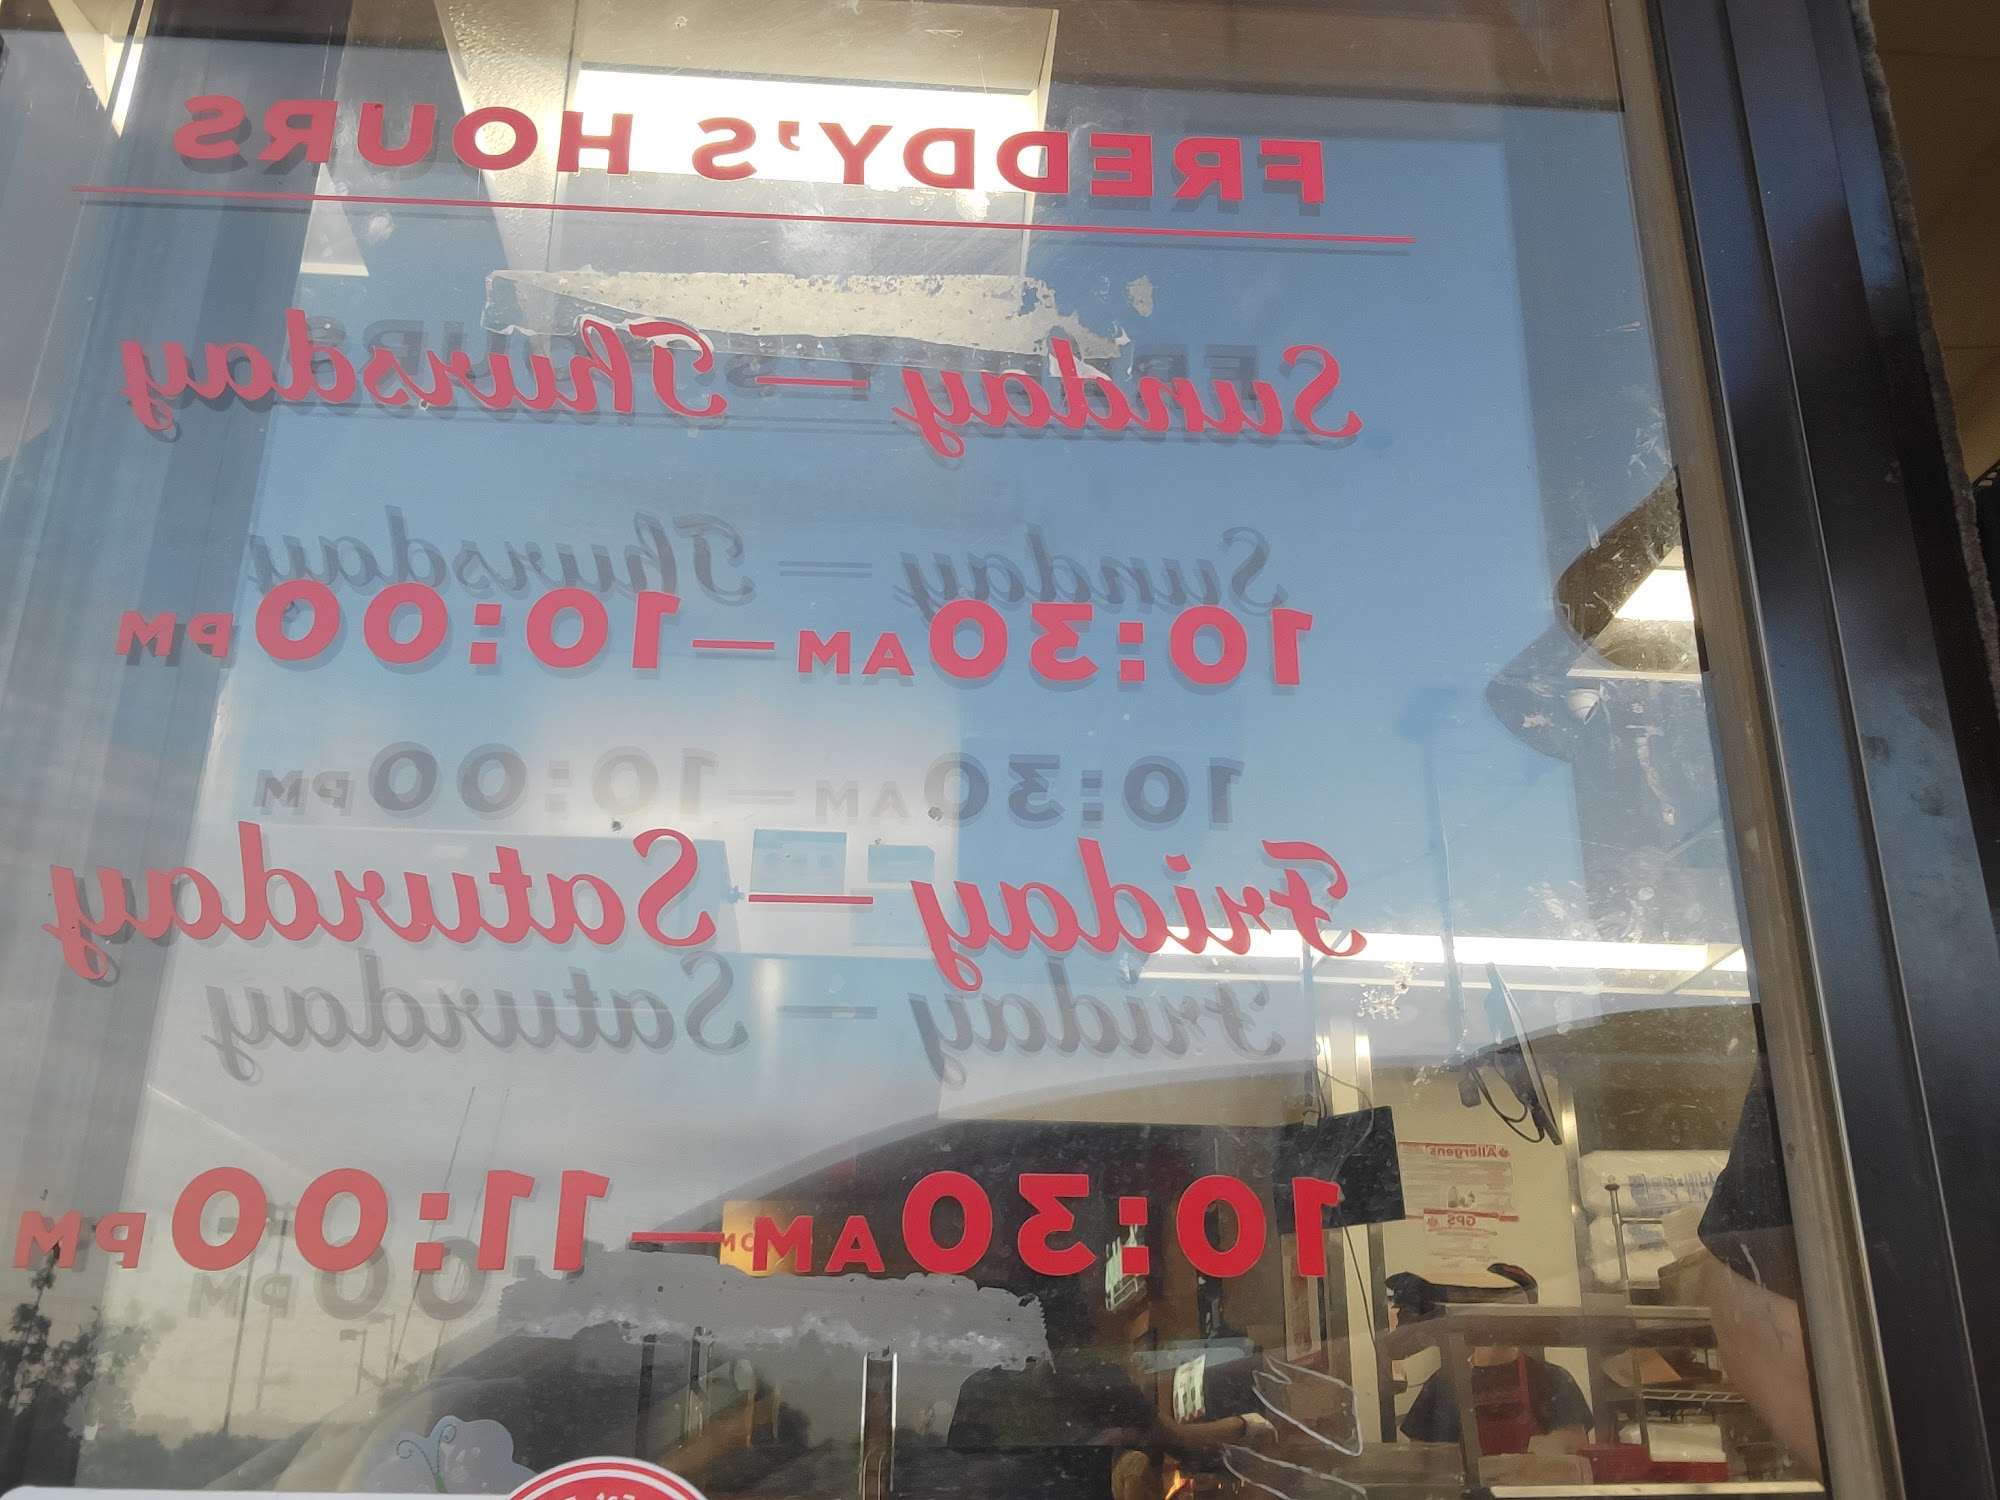 FREDDY'S HOURS
Sunday — Thursday
10:30AM — 10:00PM
Friday — Saturday
10:30AM — 11:00PM
Allergens
GPS